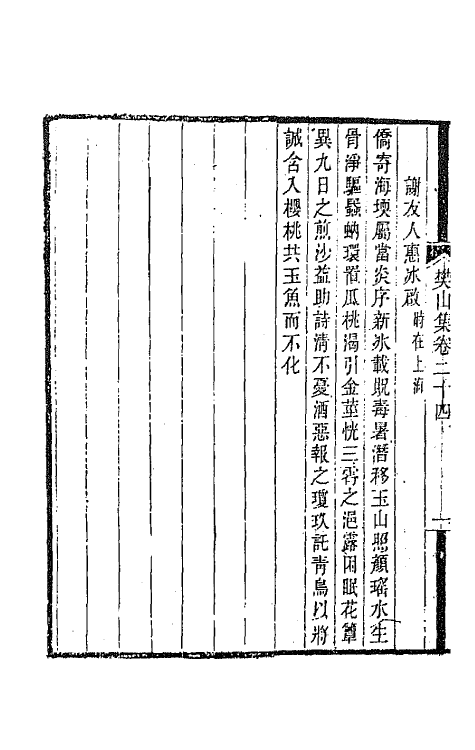 樊山集卷二十四
謝友人惠冰啟時在上海
僑寄海堧屬當炎序新冰載貺毒暑潛移玉山照顏瑤水生
骨淨驅蠅蚋環置瓜桃渴引金莖恍三霄之浥露困眠花簟
異九日之煎沙益助詩清不憂酒惡報之瓊玖託青鳥以將
誠含入櫻桃共玉魚而不化